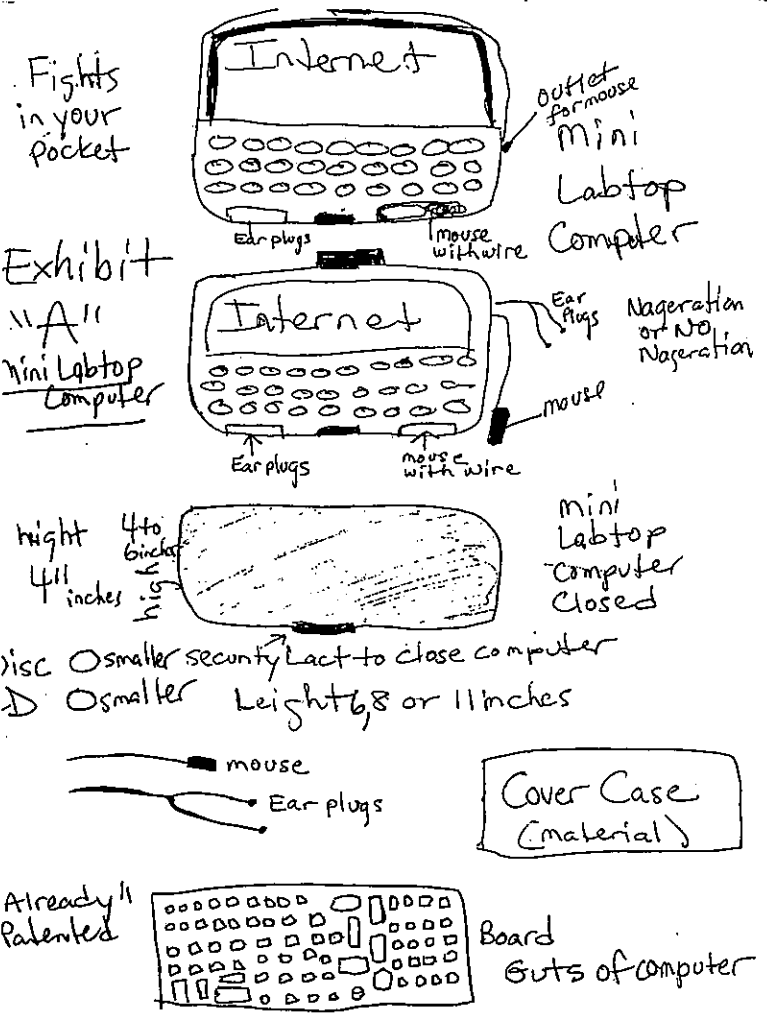 Internet
Fights
in your
Pocket
outlet
for mouse
Mini
Labtop
Computer
Ear plugs
mouse
with wire
Exhibit
"A"
Mini Labtop
Computer
Internet
Ear
Plugs
Nageration
or No
Nageration
mouse
Ear plugs
mouse
with wire
hight
4"
inches
4 to
6 inches
high
mini
Labtop
computer
Closed
Disc O smaller security Lact to close computer
D O smaller Leight 6, 8 or 11 inches
mouse
Ear plugs
Cover Case
(material)
Already"
Patented
Board
Guts of computer